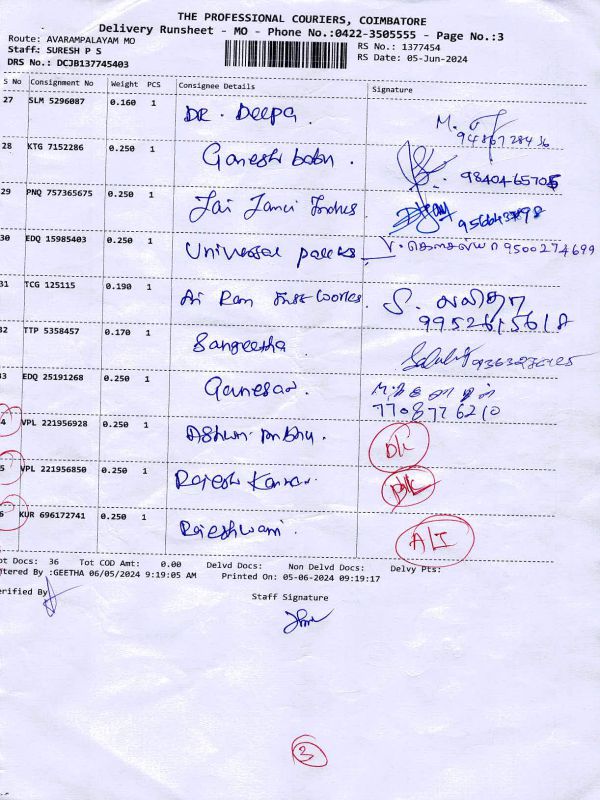 THE PROFESSIONAL COURIERS, COIMBATORE
Delivery Runsheet - MO - Phone No.:0422-3505555 - Page No.:3
Route: AVARAMPALAYAM MO
RS No.: 1377454
Staff: SURESH P S
RS Date: 05-Jun-2024
DRS No.: DCJB137745403
S No Consignment No Weight PCS Consignee Details Signature
27 SLM 5296087 0.160 1 DR. Deepa. M.
28 KTG 7152286 0.250 1 Ganesh babu. 9840465705
29 PNQ 757365675 0.250 1 Jai
30 EDQ 15985403 0.250 1 Universal 9500274699
31 TCG 125115 0.190 1 Works. S. லலிதா
9952615618
32 TTP 5358457 0.170 1 Sangeetha.
33 EDQ 25191268 0.250 1 Ganesan.
7708776210
4 VPL 221956928 0.250 1
5 VPL 221956850 0.250 1 Rajesh
6 KUR 696172741 0.250 1 Rajeshwari.
ot Docs: 36 Tot COD Amt: 0.00 Delvd Docs: Non Delvd Docs: Delvy Pts:
tered By :GEETHA 06/05/2024 9:19:05 AM Printed On: 05-06-2024 09:19:17
erified By
Staff Signature
3